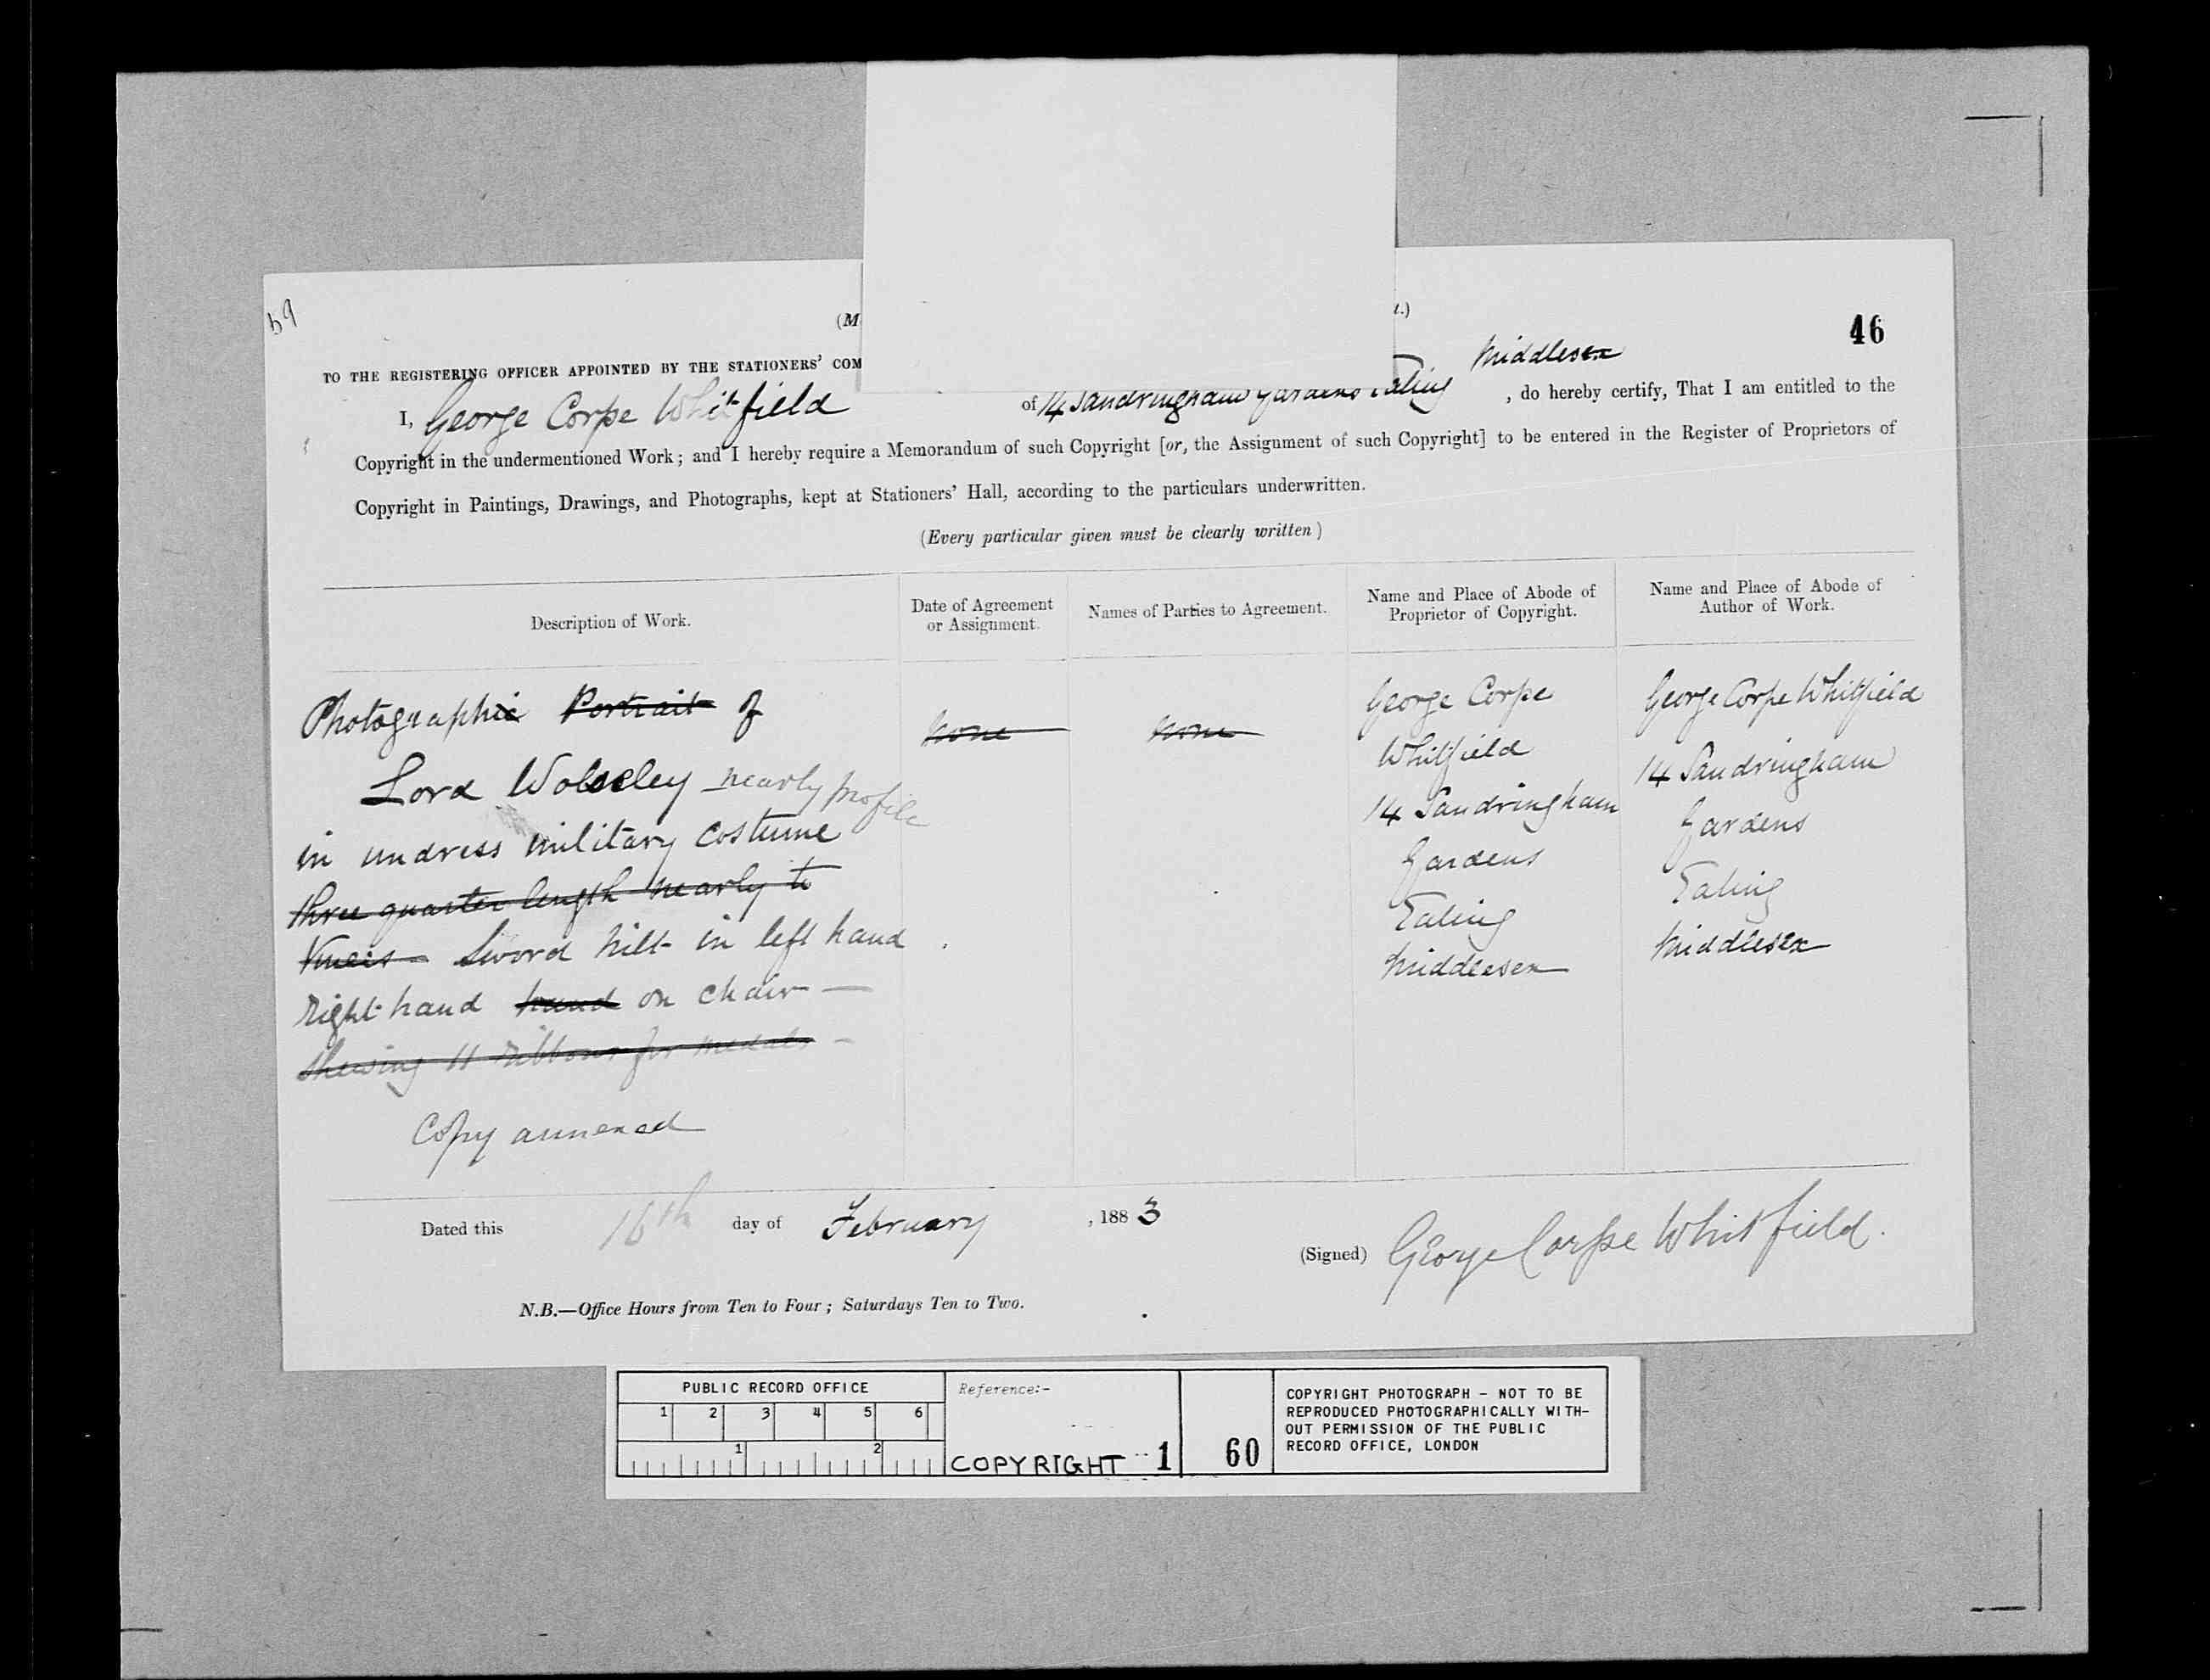 59
(M
t.)
46
TO THE REGISTERING OFFICER APPOINTED BY THE STATIONERS' COM
Middlesex
I, George Corpe Whitfield of 14 Sandringham Gardens Ealing , do hereby certify, That I am entitled to the
Copyright in the undermentioned Work; and I hereby require a Memorandum of such Copyright [or, the Assignment of such Copyright] to be entered in the Register of Proprietors of
Copyright in Paintings, Drawings, and Photographs, kept at Stationers' Hall, according to the particulars underwritten.
(Every particular given must be clearly written)
Description of Work.
Date of Agreement
or Assignment.
Names of Parties to Agreement.
Name and Place of Abode of
Proprietor of Copyright.
Name and Place of Abode of
Author of Work.
Photographic Portrait of
Lord Wolseley nearly profile
in undress military costume
three quarter length nearly to
Knees - Sword hilt in left hand
right hand hand on chair —
shewing 11 ribbons for medals —
Copy annexed
None
None
George Corpe
Whitfield
14 Sandringham
Gardens
Ealing
Middlesex
George Corpe Whitfield
14 Sandringham
Gardens
Ealing
Middlesex
Dated this 16th day of February , 1883
(Signed) George Corpe Whitfield.
N.B.—Office Hours from Ten to Four; Saturdays Ten to Two.
PUBLIC RECORD OFFICE
1 2 3 4 5 6
1 2
Reference:-
COPYRIGHT 1
60
COPYRIGHT PHOTOGRAPH - NOT TO BE
REPRODUCED PHOTOGRAPHICALLY WITH-
OUT PERMISSION OF THE PUBLIC
RECORD OFFICE, LONDON